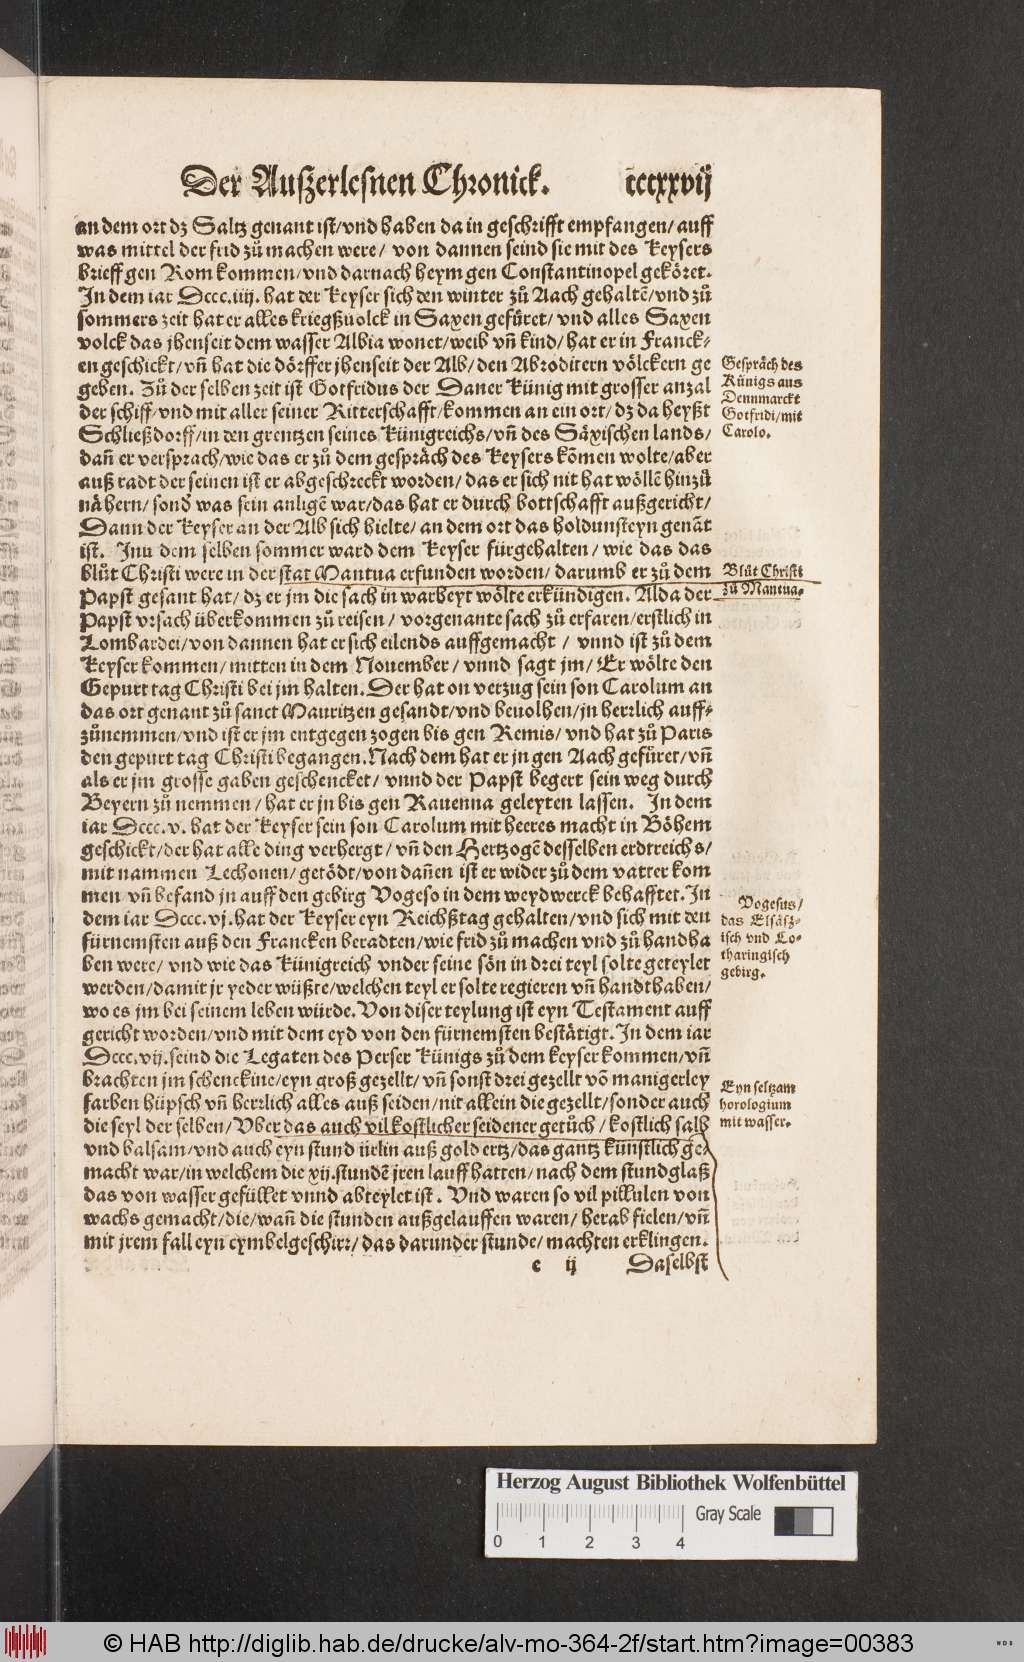 Der Außerlesnen Chronick. ccccxxvij
an dem ort dz Saltz genant ist/vnd haben da in geschrifft empfangen/auff
was mittel der frid zů machen were/ von dannen seind sie mit des Keysers
brieff gen Rom kommen/vnd darnach heym gen Constantinopel geköret.
In dem iar Dccc.iiij. hat der Keyser sich den winter zů Aach gehaltẽ/vnd zů
sommers zeit hat er alles kriegßuolck in Saxen gefüret/ vnd alles Saxen
volck das jhenseit dem wasser Albia wonet/weib vñ kind/hat er in Franck-
en geschickt/vñ hat die dörffer jhenseit der Alb/den Abroditern völckern ge
geben. Zů der selben zeit ist Gotfridus der Daner Künig mit grosser anzal
der schiff/vnd mit aller seiner Ritterschafft/kommen an ein ort/dz da heyßt
Schließdorff/in den grentzen seines Künigreichs/vñ des Säxischen lands/
dañ er versprach/wie das er zů dem gespräch des Keysers kõmen wolte/aber
auß radt der seinen ist er abgeschreckt worden/das er sich nit hat wöllẽ hinzů
nähern/sond was sein anligẽ war/das hat er durch bottschafft außgericht/
Dann der Keyser an der Alb sich hielte/an dem ort das holdunsteyn genãt
ist. Inn dem selben sommer ward dem Keyser fürgehalten/wie das das
blůt Christi were in der stat Mantua erfunden worden/darumb er zů dem
Papst gesant hat/dz er jm die sach in warheyt wölte erkündigen. Alda der
Papst vrsach überkommen zů reisen/ vorgenante sach zů erfaren/erstlich in
Lombardei/von dannen hat er sich eilends auffgemacht / vnnd ist zů dem
Keyser kommen/mitten in dem Nouember/ vnnd sagt jm/ Er wölte den
Gepurt tag Christi bei jm halten. Der hat on verzug sein son Carolum an
das ort genant zů sanct Mauritzen gesandt/vnd beuolhen/jn herrlich auff-
zůnemmen/vnd ist er jm entgegen zogen bis gen Remis/ vnd hat zů Paris
den gepurt tag Christi begangen. Nach dem hat er jn gen Aach gefüret/vñ
als er jm grosse gaben geschencket/ vnnd der Papst begert sein weg durch
Beyern zů nemmen/ hat er jn bis gen Rauenna geleyten lassen. In dem
iar Dccc.v. hat der Keyser sein son Carolum mit heeres macht in Böhem
geschickt/der hat alle ding verhergt/ vñ den Hertzogẽ desselben erdtreichs/
mit nammen Lechonen/getödt/von dañen ist er wider zů dem vatter kom
men vñ befand jn auff den gebirg Vogeso in dem weydwerck behafftet. In
dem iar Dccc.vj. hat der Keyser eyn Reichßtag gehalten/vnd sich mit den
fürnemsten auß den Francken beradten/wie frid zů machen vnd zů handha
ben were/ vnd wie das Künigreich vnder seine sön in drei teyl solte geteylet
werden/damit jr yeder wüßte/welchen teyl er solte regieren vñ handthaben/
wo es jm bei seinem leben würde. Von diser teylung ist eyn Testament auff
gericht worden/vnd mit dem eyd von den fürnemsten bestätigt. In dem iar
Dccc.vij. seind die Legaten des Perser Künigs zů dem keyser kommen/vñ
brachten jm schenckine/eyn groß gezellt/ vñ sonst drei gezellt võ manigerley
farben hüpsch vñ herrlich alles auß seiden/nit allein die gezellt/sonder auch
die seyl der selben/Vber das auch vil kostlicher seidener getůch/kostlich salb
vnd balsam/vnd auch eyn stund ürlin auß gold ertz/das gantz künstlich ge-
macht war/in welchem die xij.stundẽ jren lauff hatten/nach dem stundglaß
das von wasser gefüllet vnnd abteylet ist. Vnd waren so vil pillulen von
wachs gemacht/die/wañ die stunden außgelauffen waren/ herab fielen/vñ
mit jrem fall eyn cymbelgeschirr/das darunder stunde/machten erklingen.
c ij Daselbst
Gespräch des
Künigs aus
Dennmarckt
Gotfridi/mit
Carolo.
Blůt Christi
zů Mantua.
Vogesus/
das Elsäsz-
isch vnd Lo-
tharingisch
gebirg.
Eyn seltzam
horologium
mit wasser.
Herzog August Bibliothek Wolfenbüttel
Gray Scale
0 1 2 3 4
© HAB http://diglib.hab.de/drucke/alv-mo-364-2f/start.htm?image=00383